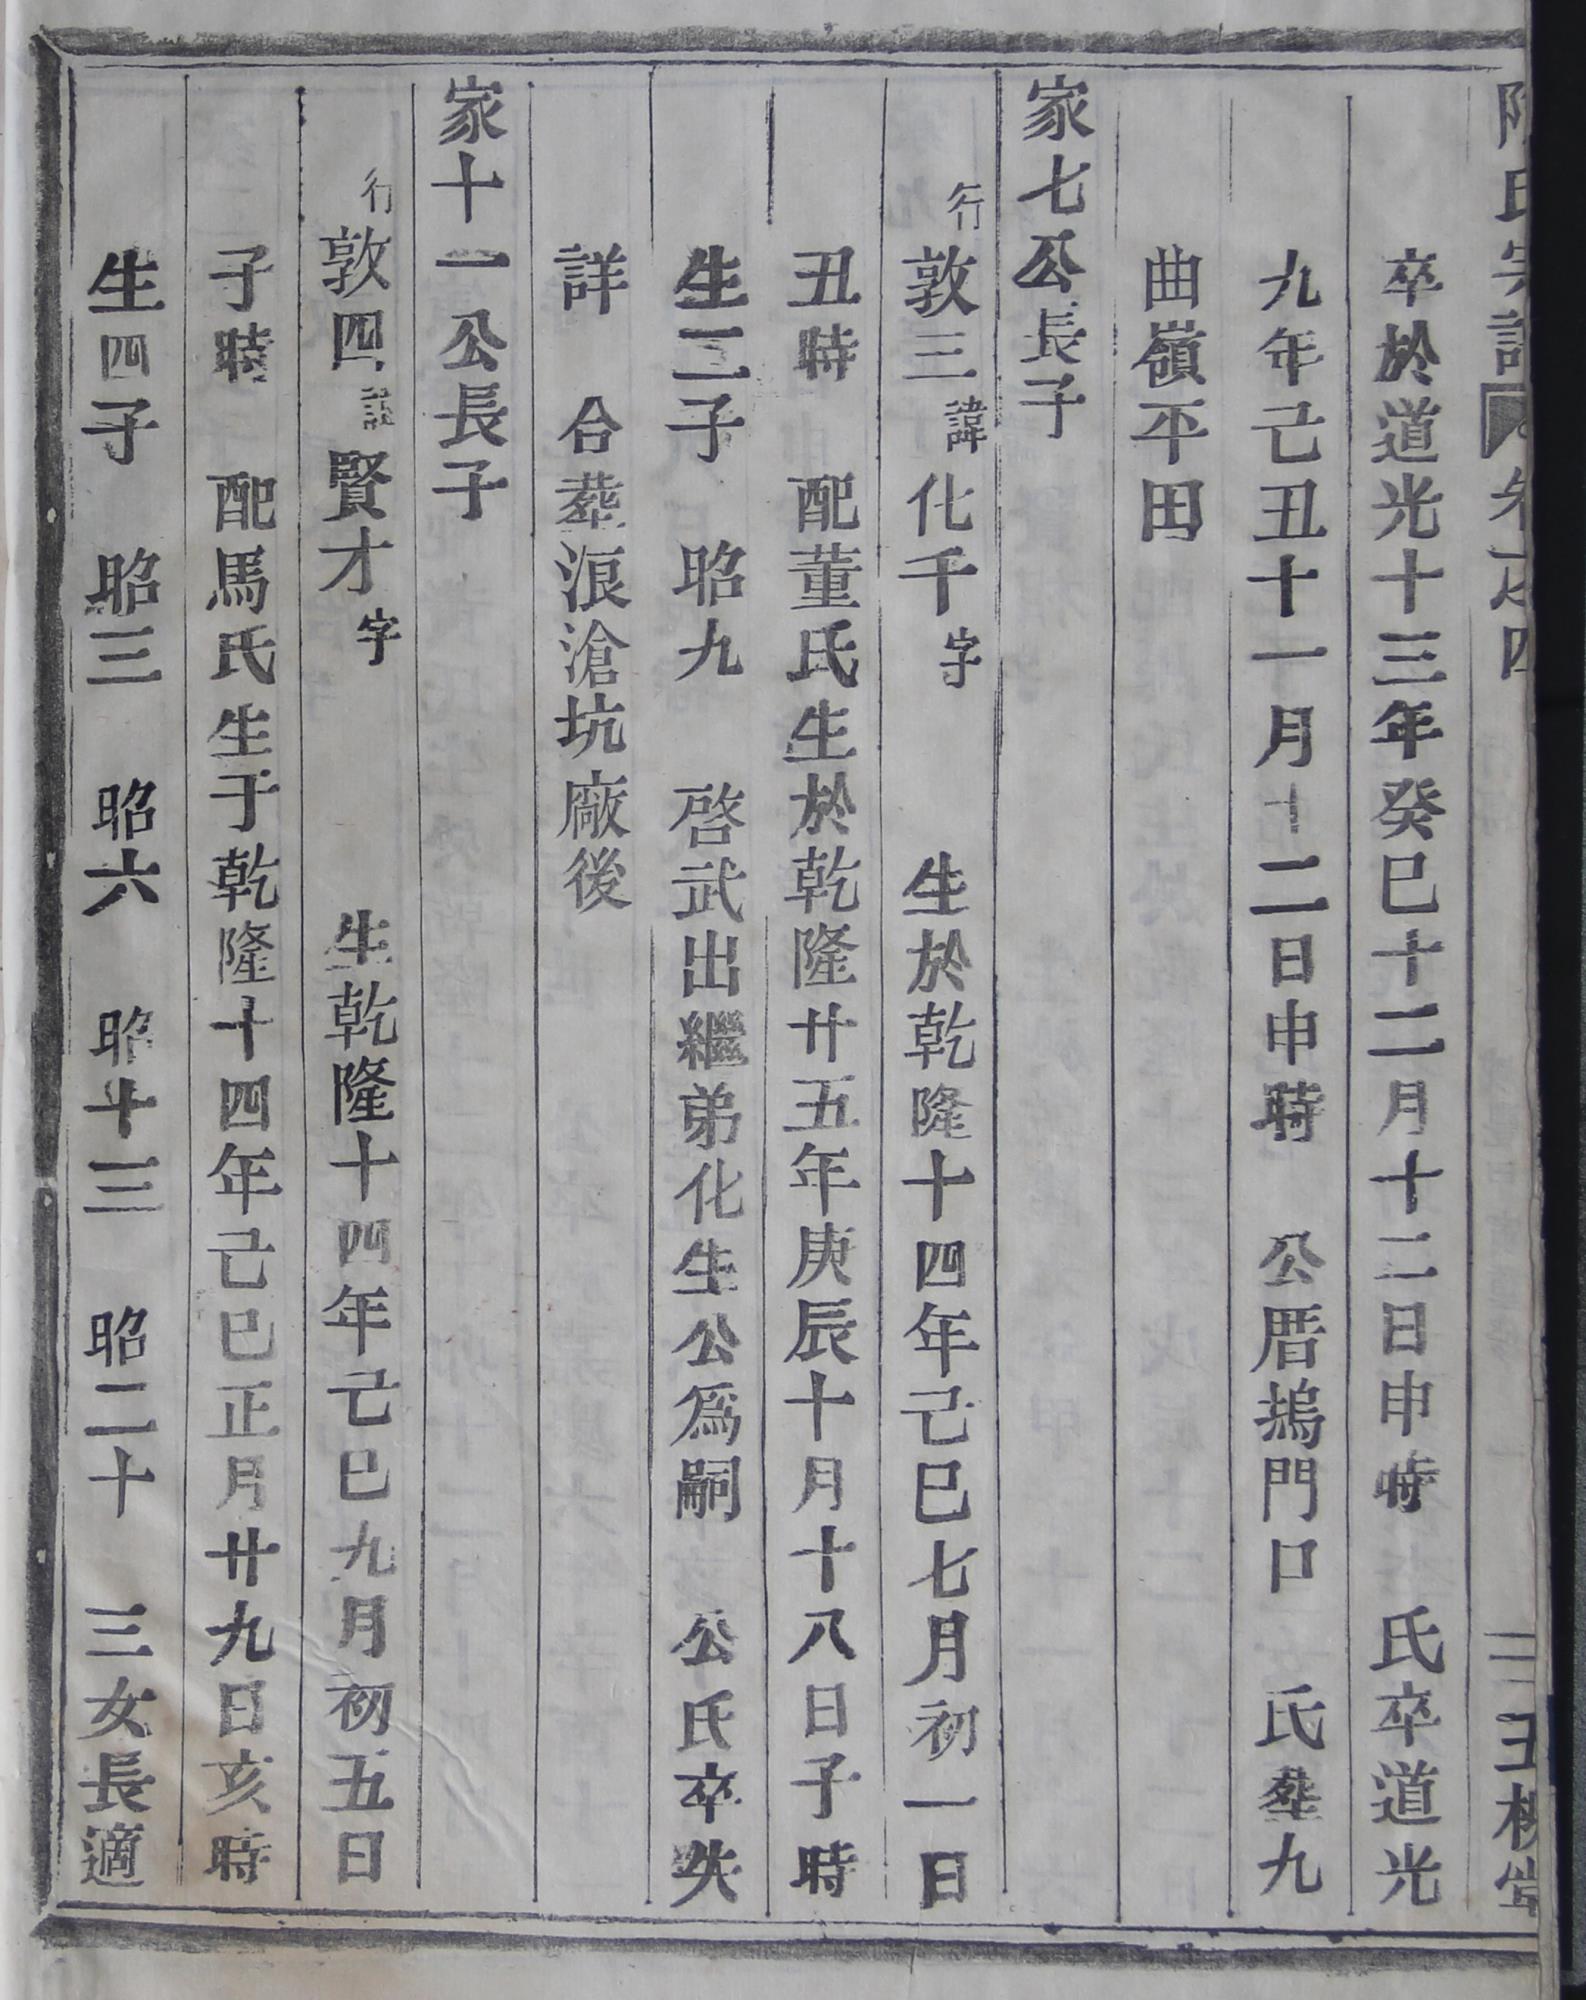 陳氏宗譜 卷之四 三 玉樹堂
卒於道光十三年癸巳十二月十二日申時 氏卒道光
九年己丑十一月十二日申時 公厝塢門口 氏葬九
曲嶺平田
家七公長子
行敦三諱化千字 生於乾隆十四年己巳七月初一日
丑時 配董氏生於乾隆廿五年庚辰十月十八日子時
生二子 昭九 啓武出繼弟化生公爲嗣 公氏卒失
詳 合葬浪滄坑廠後
家十一公長子
行敦四諱賢才字 生乾隆十四年己巳九月初五日
子時 配馬氏生于乾隆十四年己巳正月廿九日亥時
生四子 昭三 昭六 昭十三 昭二十 三女長適